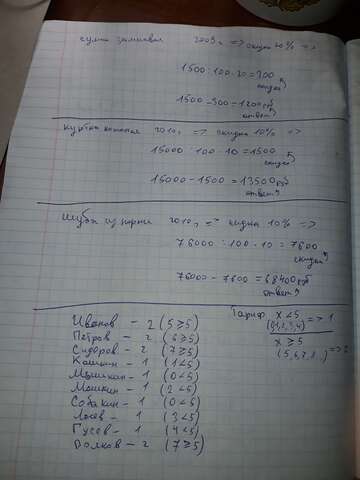 сумка замшевая 2009г => скидка 20% =>
1500 : 100 · 20 = 300
скидка
1500 - 300 = 1200 руб
ответ
куртка кожаная 2010г => скидка 10% =>
15000 : 100 · 10 = 1500
скидка
15000 - 1500 = 13500 руб
ответ
шуба из норки 2010г => скидка 10% =>
76000 : 100 · 10 = 7600
скидка
76000 - 7600 = 68400 руб
ответ
Иванов - 2 (5 ≥ 5)
Петров - 2 (6 ≥ 5)
Сидоров - 2 (7 ≥ 5)
Кошкин - 1 (1 < 5)
Мышкин - 1 (0 < 5)
Мошкин - 1 (2 < 5)
Собакин - 1 (0 < 5)
Лосев - 1 (3 < 5)
Гусев - 1 (4 < 5)
Волков - 2 (7 ≥ 5)
Тариф x < 5
(0,1,2,3,4) => 1
x ≥ 5
(5,6,7,8..) => 2